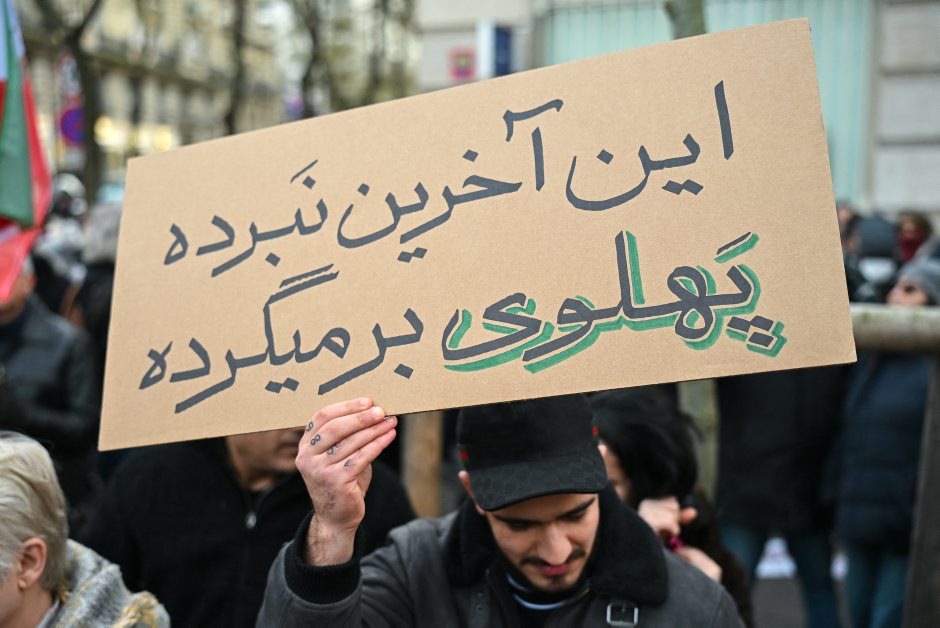 این آخرین نَبرده
پَهلوی برمیگرده